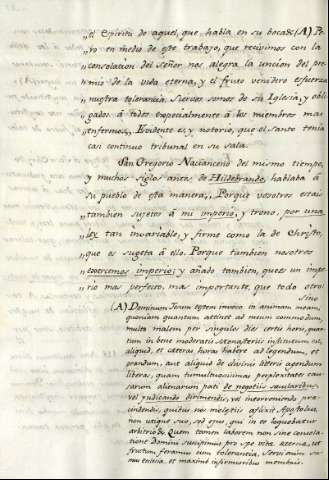 el Espiritu de aquel, que habla en su boca &(A) Pe-
ro en medio de este trabajo, que recivimos con la
consolacion del Señor nos alegra la uncion del pre-
mio de la vida eterna, y el fruto venidero esfuerza
nuestra tolerancia. Siervos somos de su Iglesia, y obli-
gados à todos especialmente à los miembros mas
enfermos. Evidente es, y notorio, que el santo tenia
casi continuo tribunal en su sala.
San Gregorio Nacianceno del mismo tiempo,
y muchos siglos antes de Hildebrando, hablaba à
su pueblo de esta manera: Porque vosotros estais
tambien sujetos à mi imperio, y trono, por una
ley tan invariable, y firme como la de Christo,
que os sugeta à ello. Porque tambien nosotros
exercemos imperio; y añado tambien, que es un impe-
rio mas perfecto, mas importante, que todo otro
Sino
(A) Dominum Jesum testem invoco in animam meam,
quoniam quantum attinet ad meum commodum
multo malem per singulos dies certis horis, quan-
tum in bene moderatis Monasteriis institutum est,
aliquid, et ceteras horas habere ad legendum, et
orandum, aut aliquid de divinis literis agendum
liberas, quam tumultuosissimas perplexitates cau-
sarum alienarum pati de negotiis saecularibus,
vel judicando dirimendis, vel interveniendo prae-
cidendis, quibus nos molestiis aflixit Apostolus,
non utique suo, sed ejus, qui in eo loquebatur
arbitrio & Quem tamen laborem non sine consola-
tione Domini suscipimus pro spe vitae eternae, ut
fructum feramus cum tolerantia, Servi enim su-
mus ecclesiae, et maxime infirmioribus membris.